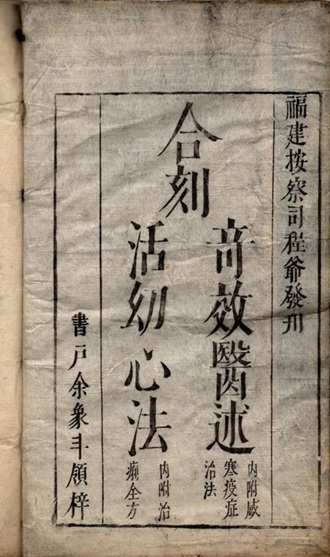 福建按察司程爺發刋
合刻
竒效醫述
內附感
寒疫症
治法
活幼心法
內附治
痢全方
書戸余象斗領梓